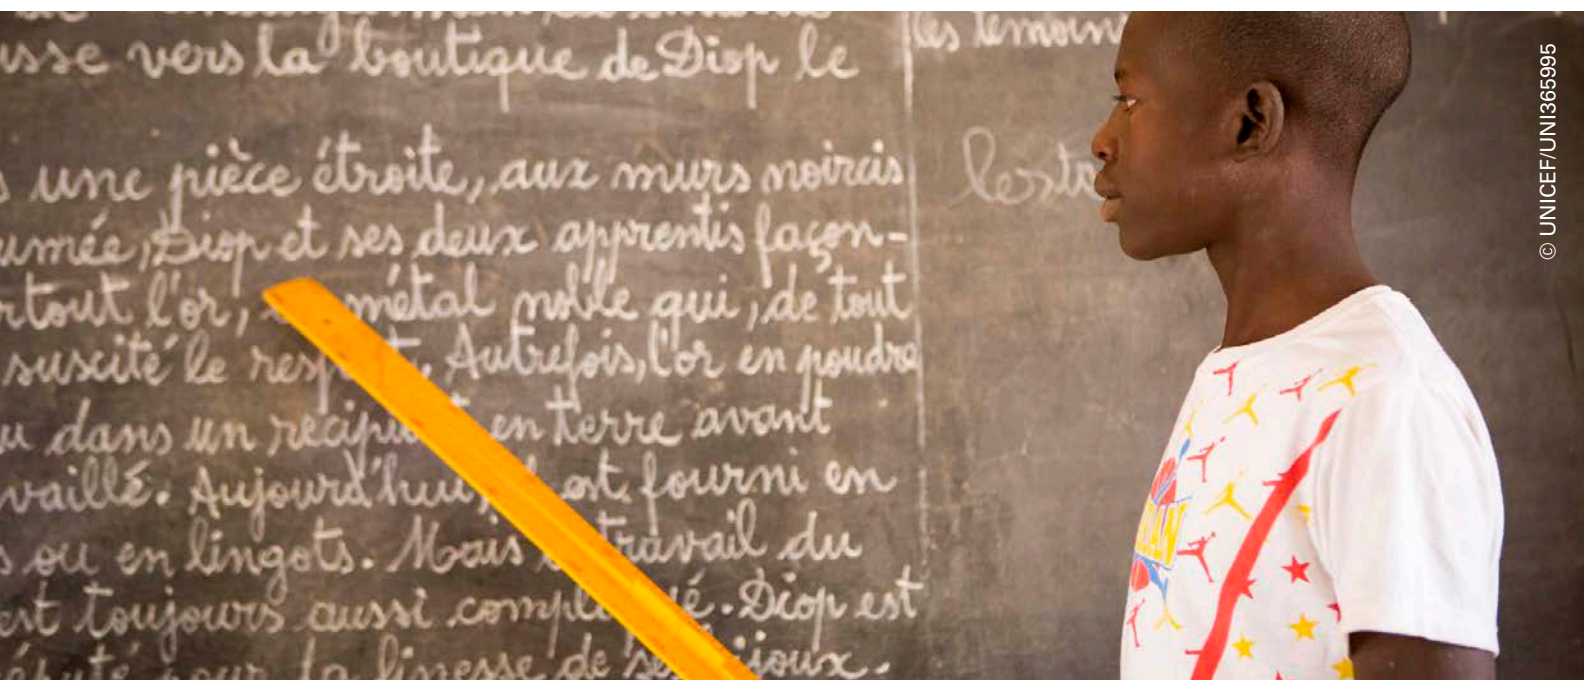 usse vers la boutique de Diop le
les témoins
s une pièce étroite, aux murs noircis
umée, Diop et ses deux apprentis façon-
rtout l'or, métal noble qui, de tout
suscité le respect. Autrefois, l'or en poudre
u dans un récipient en terre avant
vaillé. Aujourd'hui, est fourni en
s ou en lingots. Mais travail du
est toujours aussi compliqué. Diop est
réputé pour la finesse de ses bijoux.
© UNICEF/UNI365995